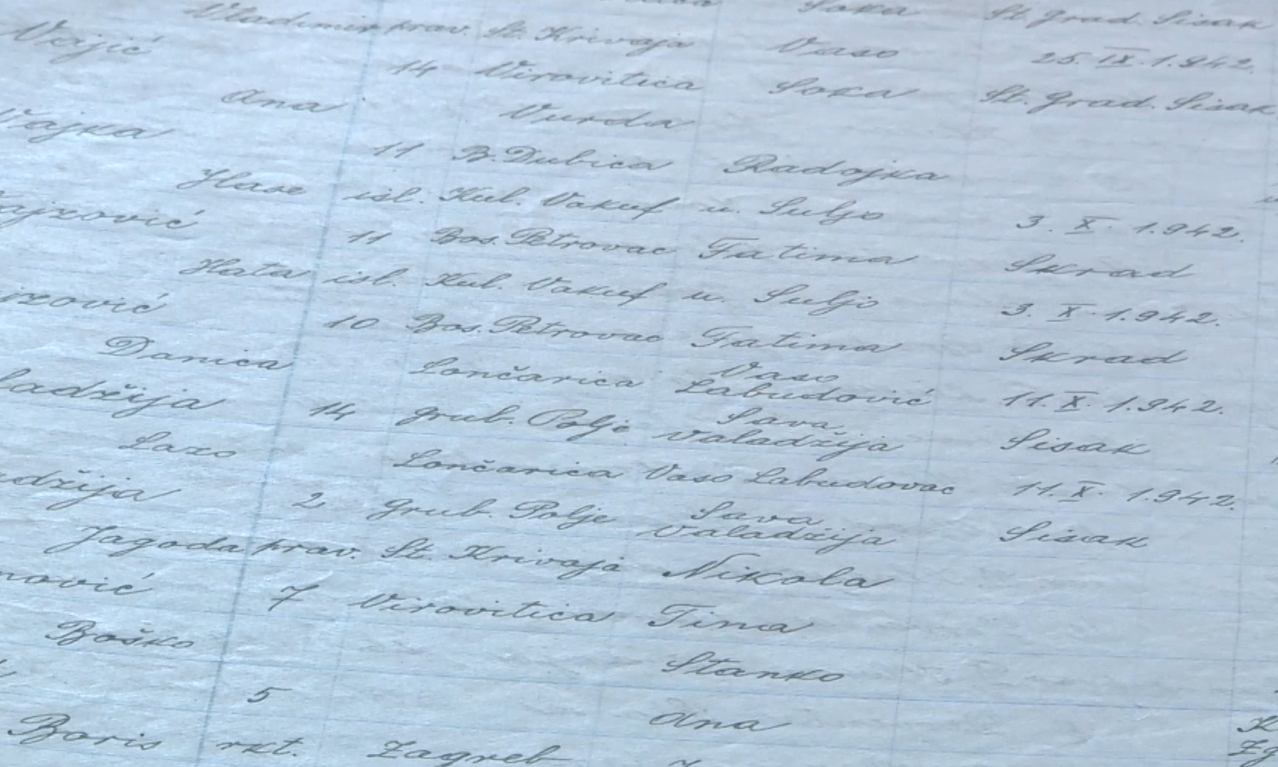 Soka St. Grad. Sisak
Vladimir prav. St. Krivaja Vaso 25. IX. 1.942.
Vajić 14 Virovitica Soka St. Grad. Sisak
Ana Vurda
Vajka 11 B. Dubica Radojka
Hase isl. Kul. Vakuf u. Suljo 3. X. 1.942.
11 Bos. Petrovac Fatima Skrad
Hata isl. Kul. Vakuf u. Suljo 3. X. 1.942.
10 Bos. Petrovac Fatima Skrad
Danica Lončarica Vaso Labudović 11. X. 1.942.
ladžija 14 Grub. Polje Sava Valadžija Sisak
Lazo Lončarica Vaso Labudovac 11. X. 1.942.
adžija 2 Grub. Polje Sava Valadžija Sisak
Jagoda prav. St. Krivaja Nikola
nović 7 Virovitica Tina
Boško Stanko
5 Ana
Boris rkt. Zagreb